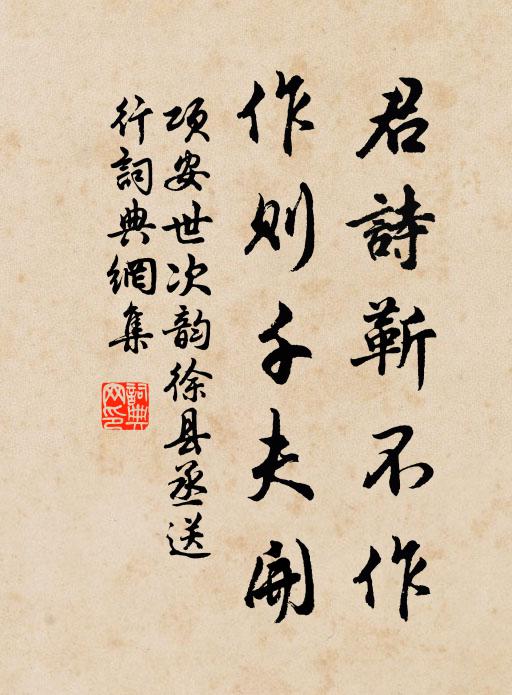 君詩靳不作
作則千夫開
項安世次韵徐县丞送
行詞典網集
詞典
网印